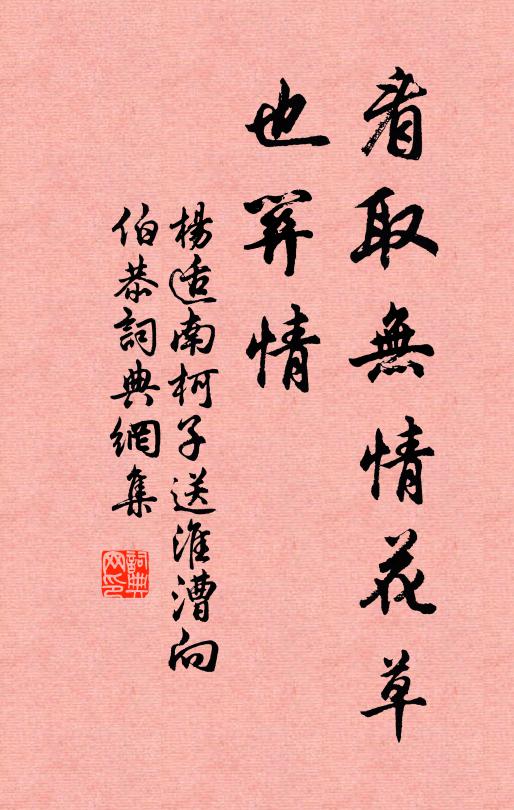 看取無情花草
也關情
楊适南柯子送淮漕向
伯恭詞典網集
詞典網印